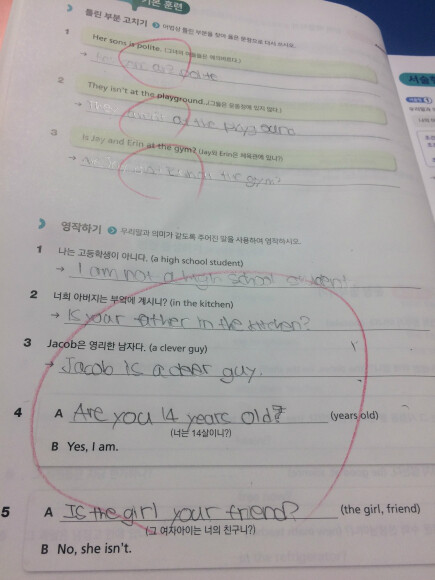 기본 훈련
틀린 부분 고치기 어법상 틀린 부분을 찾아 옳은 문장으로 다시 쓰시오.
1 Her sons is polite. (그녀의 아들들은 예의바르다.)
→ polite
2 They isn't at the playground. (그들은 운동장에 있지 않다.)
→ at the
3 Is Jay and Erin at the gym? (Jay와 Erin은 체육관에 있니?)
→ the gym?
영작하기 우리말과 의미가 같도록 주어진 말을 사용하여 영작하시오.
1 나는 고등학생이 아니다. (a high school student)
→ I am not a high school student
2 너희 아버지는 부엌에 계시니? (in the kitchen)
→ Is your father in the kitchen?
3 Jacob은 영리한 남자다. (a clever guy)
→ Jacob is a clever guy.
4 A Are you 14 years old? (years old)
(너는 14살이니?)
B Yes, I am.
5 A Is the girl your friend? (the girl, friend)
(그 여자아이는 너의 친구니?)
B No, she isn't.
서술형